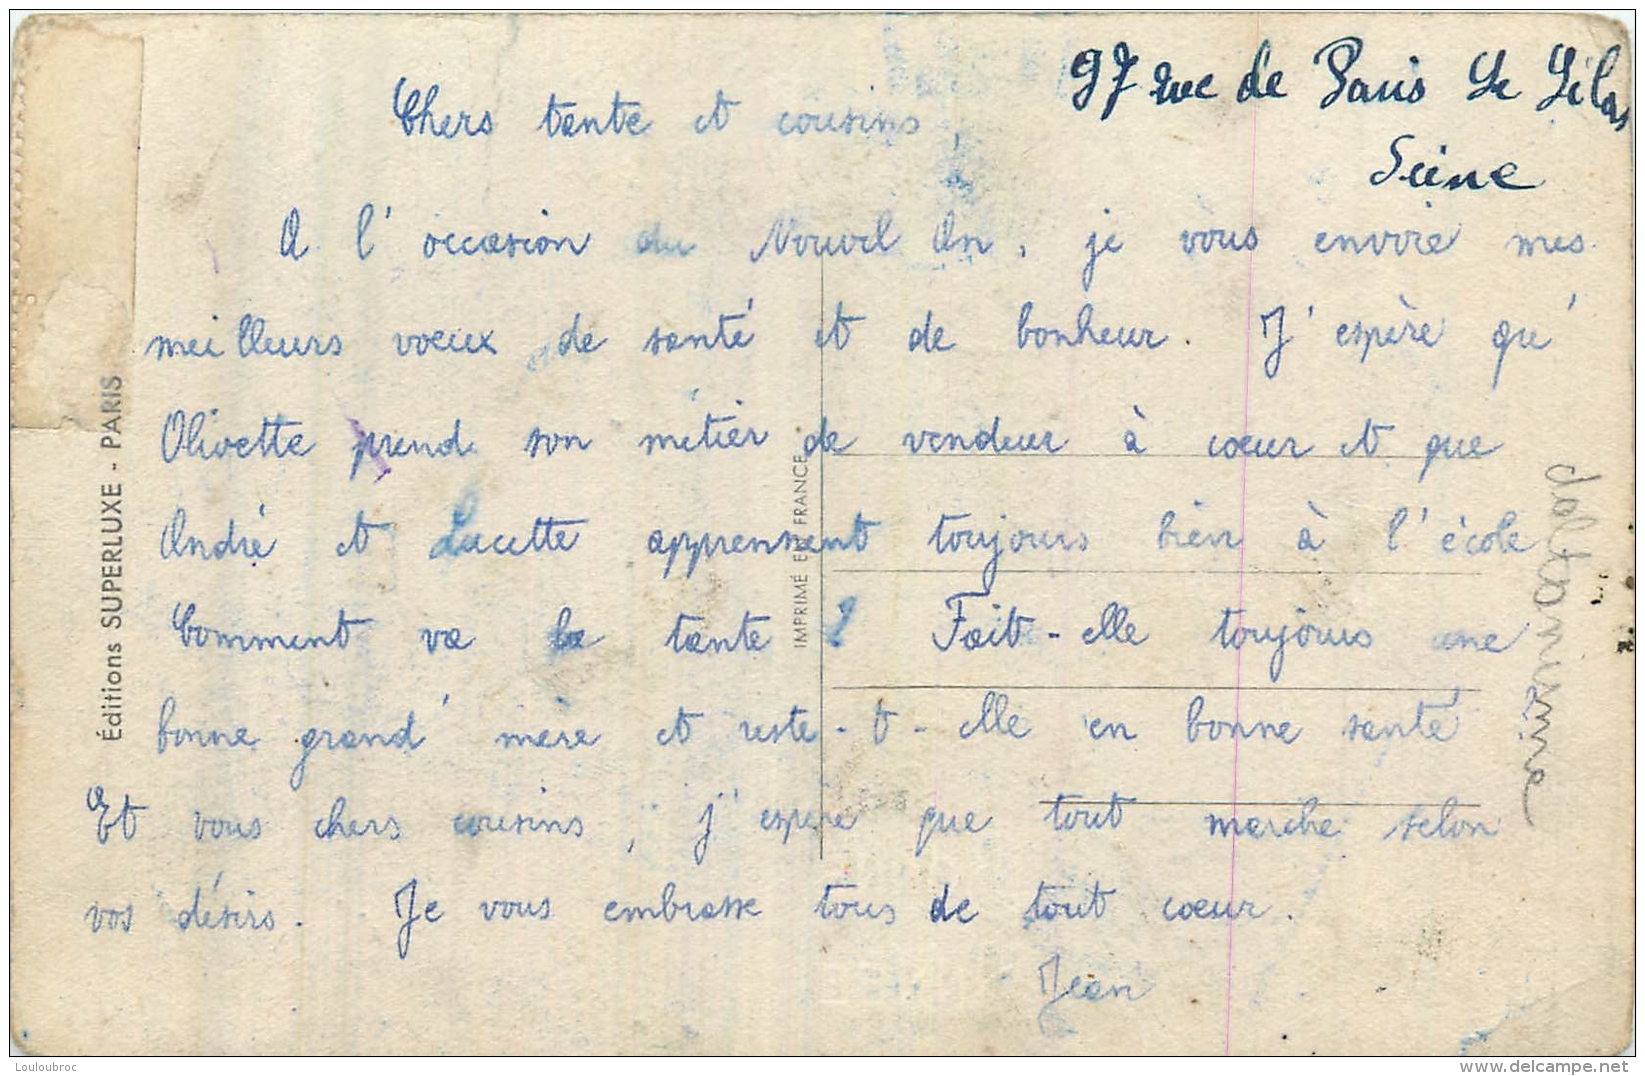 97 rue de Paris Le Lilas
Seine
Chers tante et cousins,
A l'occasion du Nouvel An, je vous envoie mes
meilleurs voeux de santé et de bonheur. J'espère qu'
Olivette prend son métier de vendeur à coeur et que
André et Lucette apprennent toujours bien à l'école
Comment va la tante ? Fait-elle toujours une
bonne grand'mère et reste-t-elle en bonne santé
Et vous chers cousins, j'espère que tout marche selon
vos désirs. Je vous embrasse tous de tout coeur.
Jean
Éditions SUPERLUXE - PARIS
IMPRIMÉ EN FRANCE
Louloubroc
www.delcampe.net